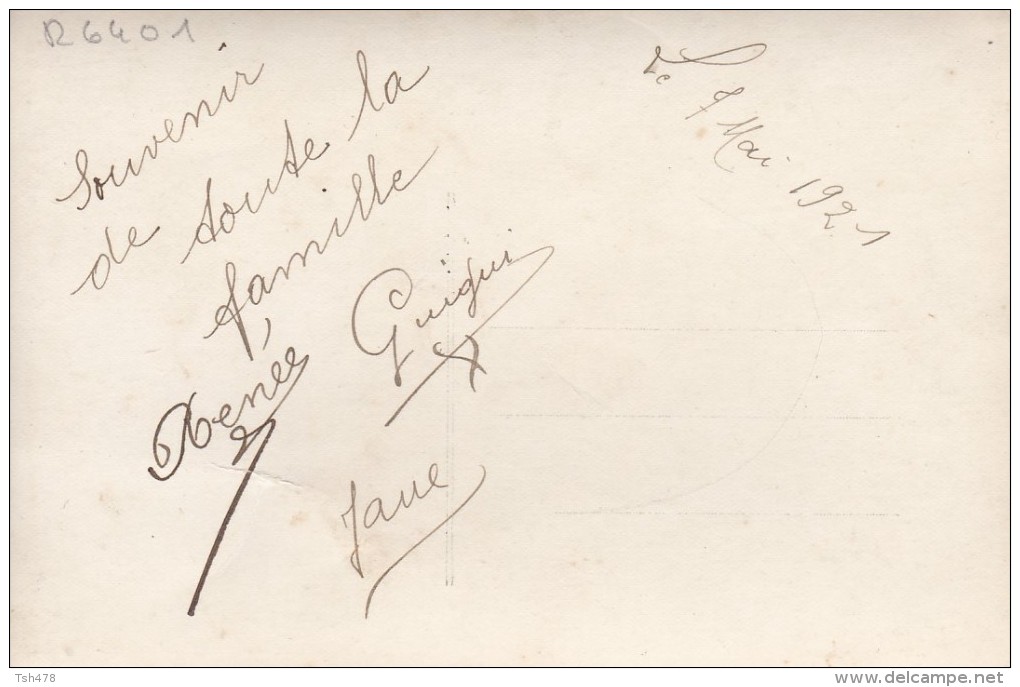 R6401
Le 7 Mai 1921
Souvenir
de toute la
famille
Renée
Guigui
Jane
Tsh478
www.delcampe.net